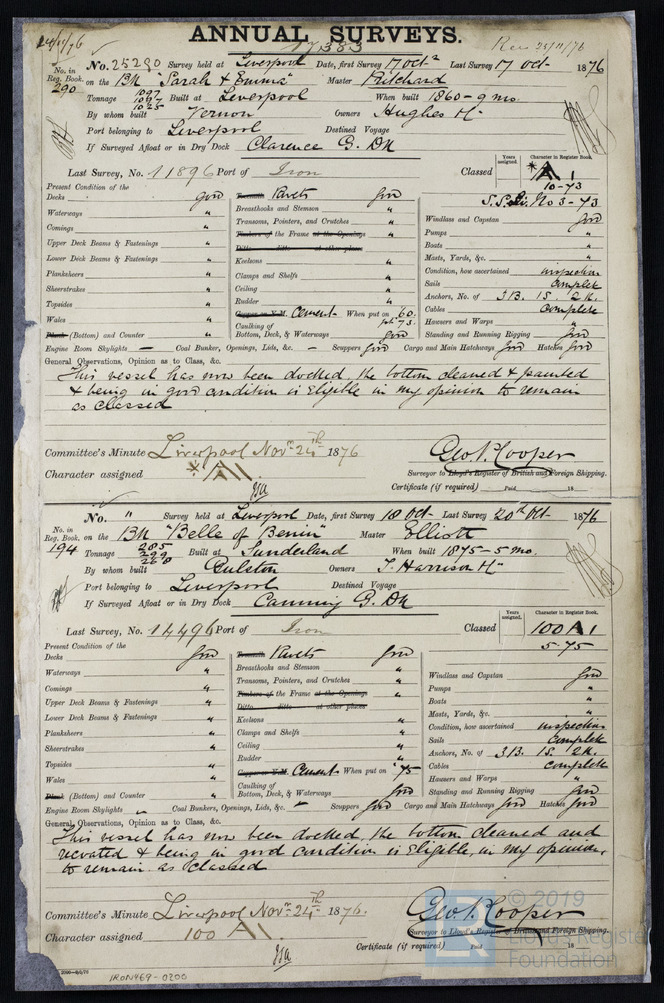 ANNUAL SURVEYS.
24/11/76
17383
Rec 23/11/76
No. 25290 Survey held at Liverpool Date, first Survey 17 Oct Last Survey 17 Oct 1876
No. in Reg. Book. 290 on the Bk "Sarah & Emma" Master Pritchard
Tonnage 1097 1047 1025 Built at Liverpool When built 1860-9 mo.
By whom built Vernon Owners Hughes
Port belonging to Liverpool Destined Voyage
If Surveyed Afloat or in Dry Dock Clarence G. Dk
Last Survey, No. 11896 Port of Iron Classed
Years assigned.
Character in Register Book.
*A1
10-73
No 3-73
Present Condition of the
Decks good
Waterways "
Comings "
Upper Deck Beams & Fastenings "
Lower Deck Beams & Fastenings "
Planksheers "
Sheerstrakes "
Topsides "
Wales "
Plank (Bottom) and Counter "
Treenails Rivets good
Breasthooks and Stemson "
Transoms, Pointers, and Crutches "
Timbers of the Frame at the Openings "
Ditto ditto at other places
Keelsons "
Clamps and Shelfs "
Ceiling "
Rudder "
Copper or Y.M. Cement When put on 60. pt 73.
Caulking of
Bottom, Deck, & Waterways good
Windlass and Capstan good
Pumps "
Boats "
Masts, Yards, &c. "
Condition, how ascertained inspection
Sails complete
Anchors, No. of 3B. 1S. 2K.
Cables complete
Hawsers and Warps "
Standing and Running Rigging good
Engine Room Skylights — Coal Bunkers, Openings, Lids, &c. — Scuppers good Cargo and Main Hatchways good Hatches good
General Observations, Opinion as to Class, &c.
This vessel has now been docked, the bottom cleaned & painted
& being in good condition is Eligible in my opinion to remain
as classed
Committee's Minute Liverpool Novr 24th 1876
Character assigned *A1
Geo. P. Cooper
Surveyor to Lloyd's Register of British and Foreign Shipping.
Certificate (if required) Paid 18
No. " Survey held at Liverpool Date, first Survey 18 Oct Last Survey 20th Oct 1876
No. in Reg. Book. 194 on the Bk "Belle of Benin" Master Elliott
Tonnage 285 299 268 Built at Sunderland When built 1875-5 mo.
By whom built Gulston Owners T. Harrison
Port belonging to Liverpool Destined Voyage
If Surveyed Afloat or in Dry Dock Canning G. Dk
Last Survey, No. 14496 Port of Iron Classed
Years assigned.
Character in Register Book.
100 A1
5-75
Present Condition of the
Decks good
Waterways "
Comings "
Upper Deck Beams & Fastenings "
Lower Deck Beams & Fastenings "
Planksheers "
Sheerstrakes "
Topsides "
Wales "
Plank (Bottom) and Counter "
Treenails Rivets good
Breasthooks and Stemson "
Transoms, Pointers, and Crutches "
Timbers of the Frame at the Openings "
Ditto ditto at other places
Keelsons "
Clamps and Shelfs "
Ceiling "
Rudder "
Copper or Y.M. Cement When put on "75
Caulking of
Bottom, Deck, & Waterways good
Windlass and Capstan good
Pumps "
Boats "
Masts, Yards, &c. "
Condition, how ascertained inspection
Sails complete
Anchors, No. of 3B. 1S. 2K.
Cables complete
Hawsers and Warps "
Standing and Running Rigging good
Engine Room Skylights Coal Bunkers, Openings, Lids, &c. Scuppers good Cargo and Main Hatchways good Hatches good
General Observations, Opinion as to Class, &c.
This vessel has now been docked, the bottom cleaned and
recoated & being in good condition is Eligible, in my opinion,
to remain as classed
Committee's Minute Liverpool Novr 24th 1876.
Character assigned 100 A1
Geo. P. Cooper
Surveyor to Lloyd's Register of British and Foreign Shipping.
Certificate (if required) Paid 18
IRON469-0200
© 2019
Lloyd's Register
Foundation